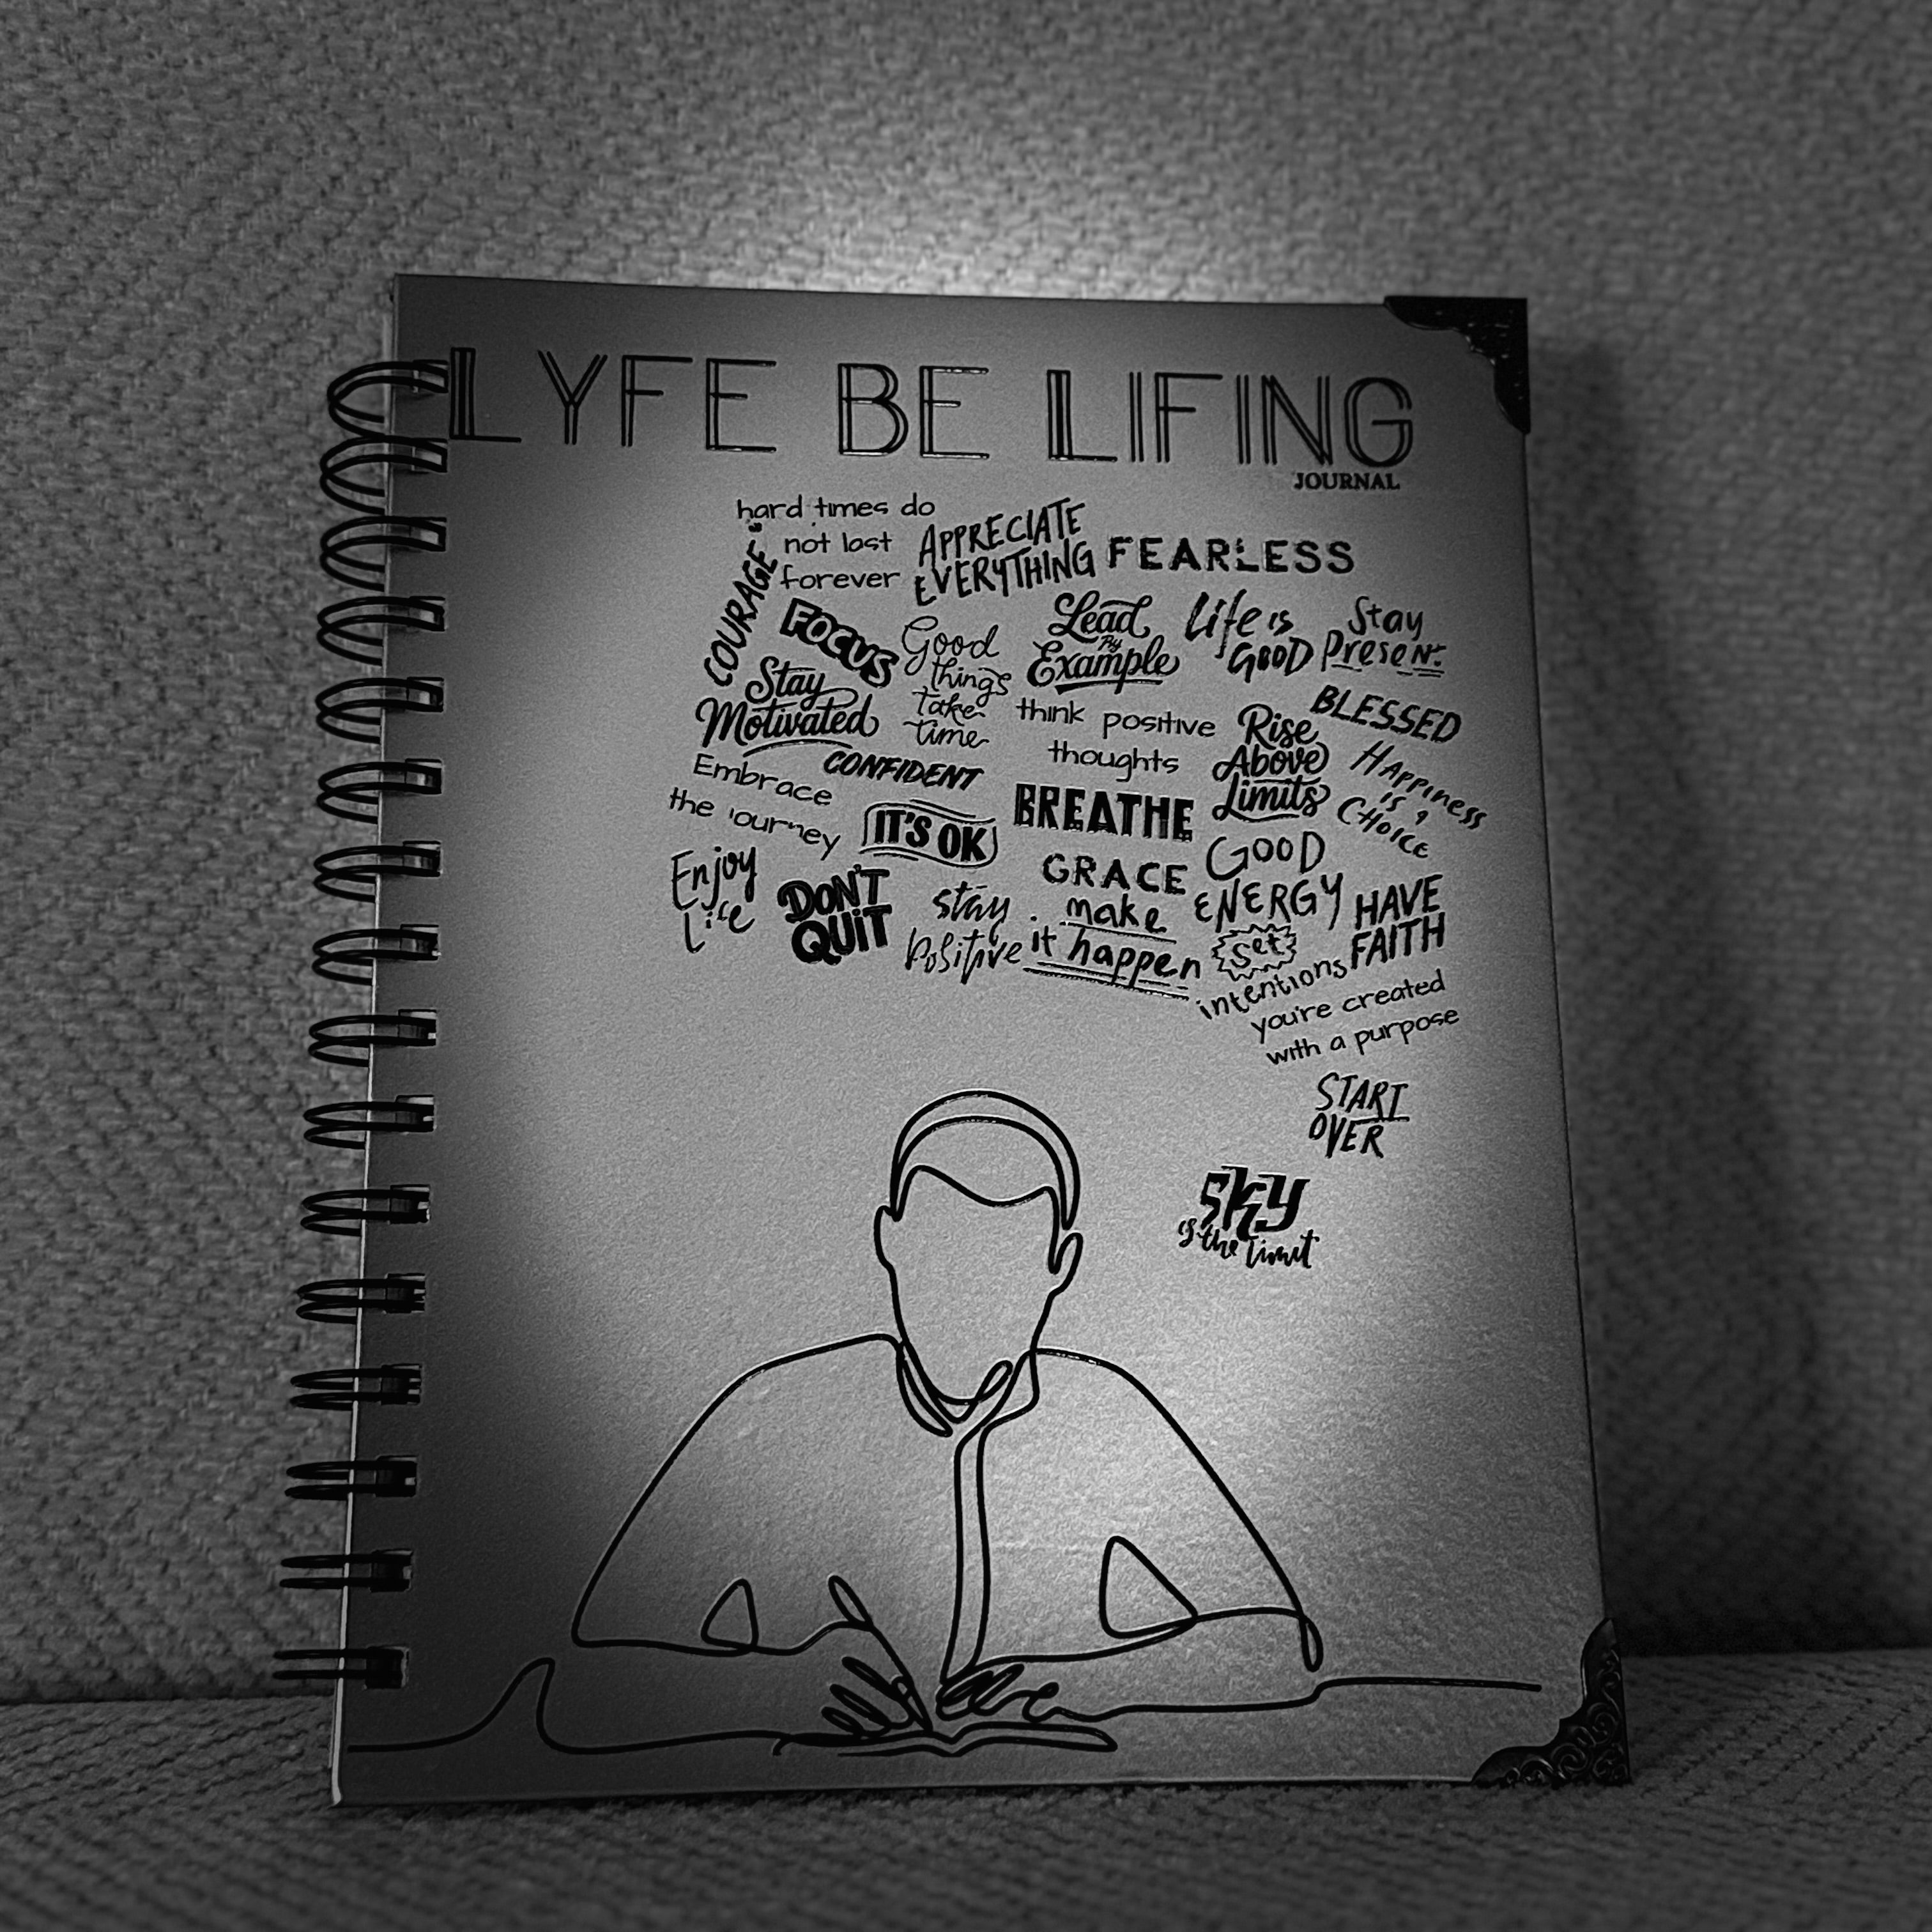 LYFE BE LIFING
JOURNAL
hard times do
not last
forever
COURAGE
APPRECIATE
EVERYTHING
FEARLESS
FOCUS
Good
things
take
time
Lead
By
Example
Life is
GOOD
Stay
Present
Stay
Motivated
think positive
thoughts
Rise
Above
Limits
BLESSED
CONFIDENT
Happiness
is a
Choice
Embrace
the journey
IT'S OK
BREATHE
GRACE
GOOD
ENERGY
Enjoy
Life
DON'T
QUIT
stay
positive
make
it happen
HAVE
FAITH
set
intentions
you're created
with a purpose
START
OVER
SKY
is the limit